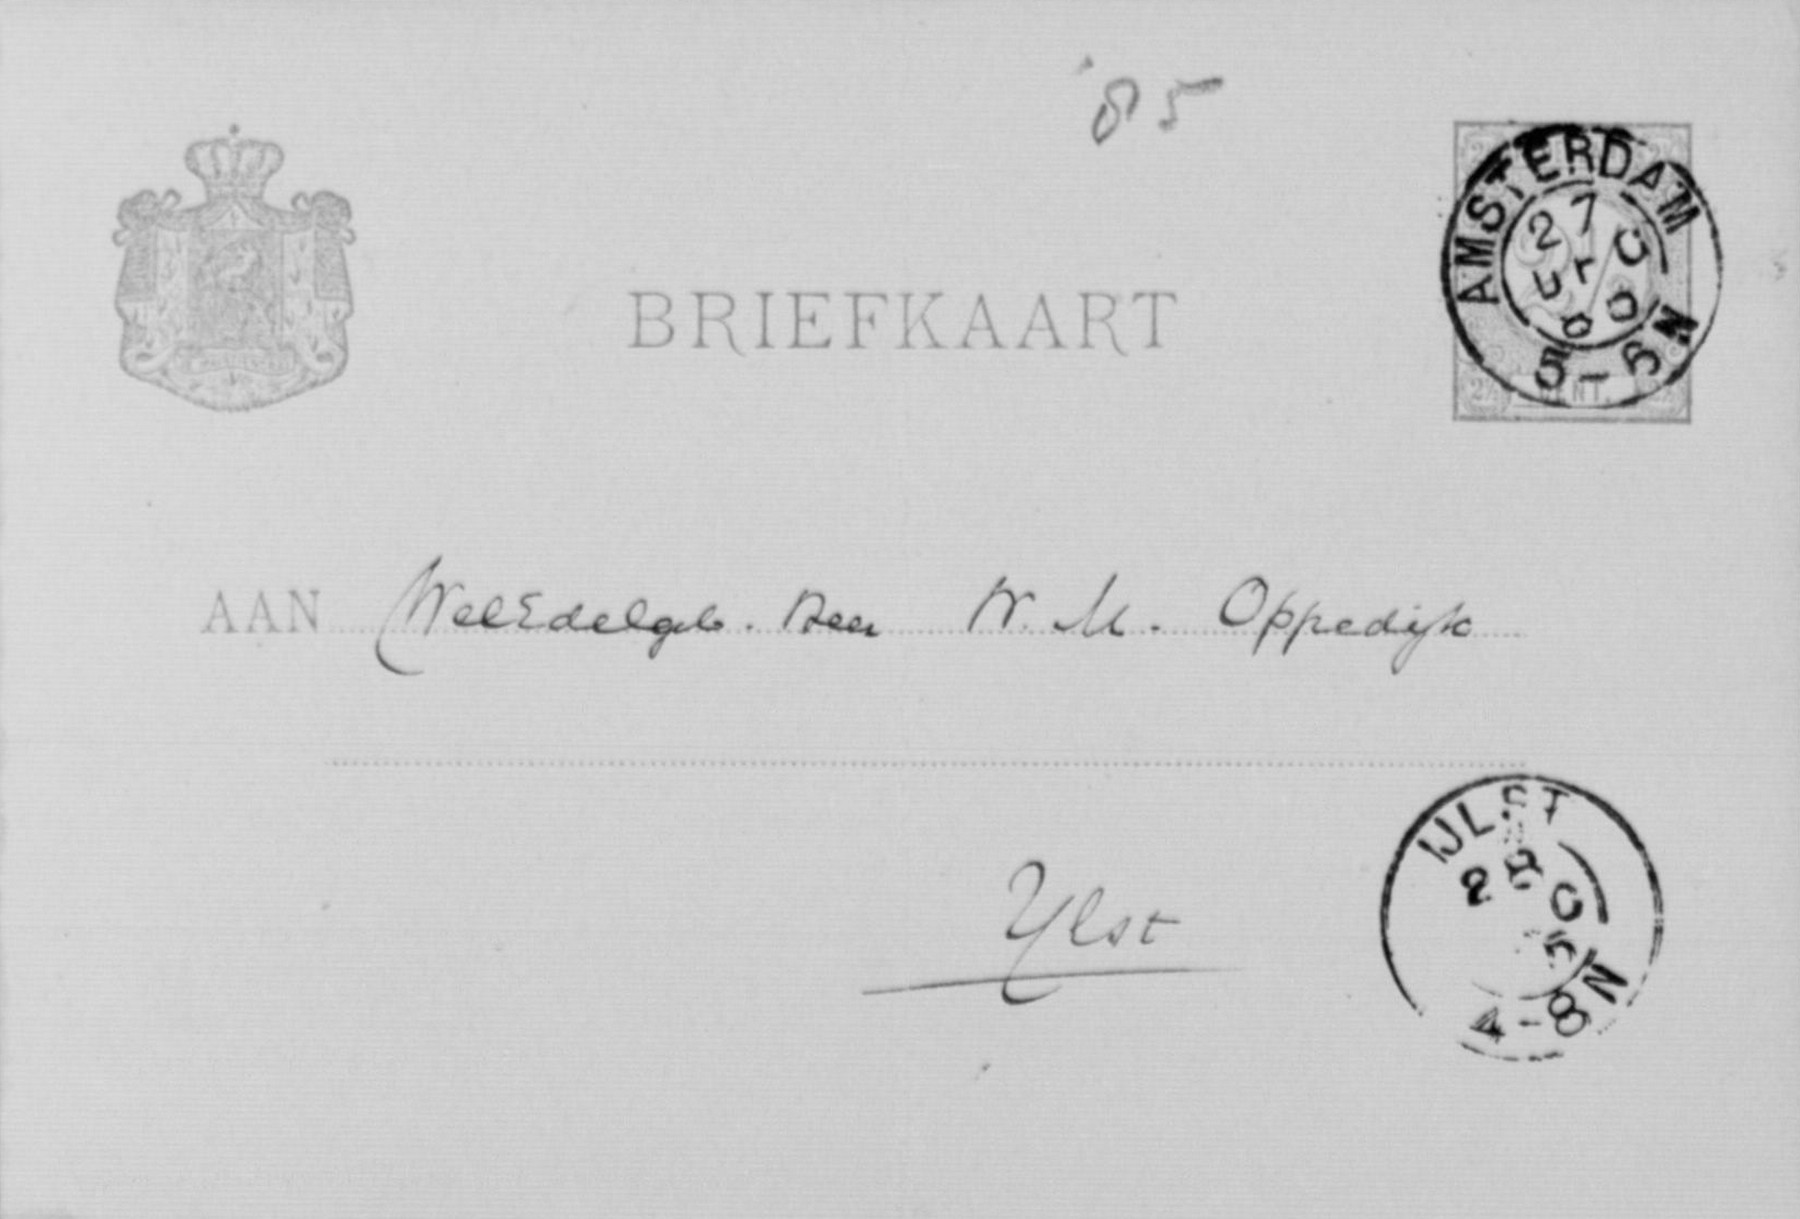 '85
BRIEFKAART
AMSTERDAM
27
5-6N
2½ CENT.
AAN WelEdelgeb. Heer W. M. Oppedijk
Ylst
IJLST
28
4-8N